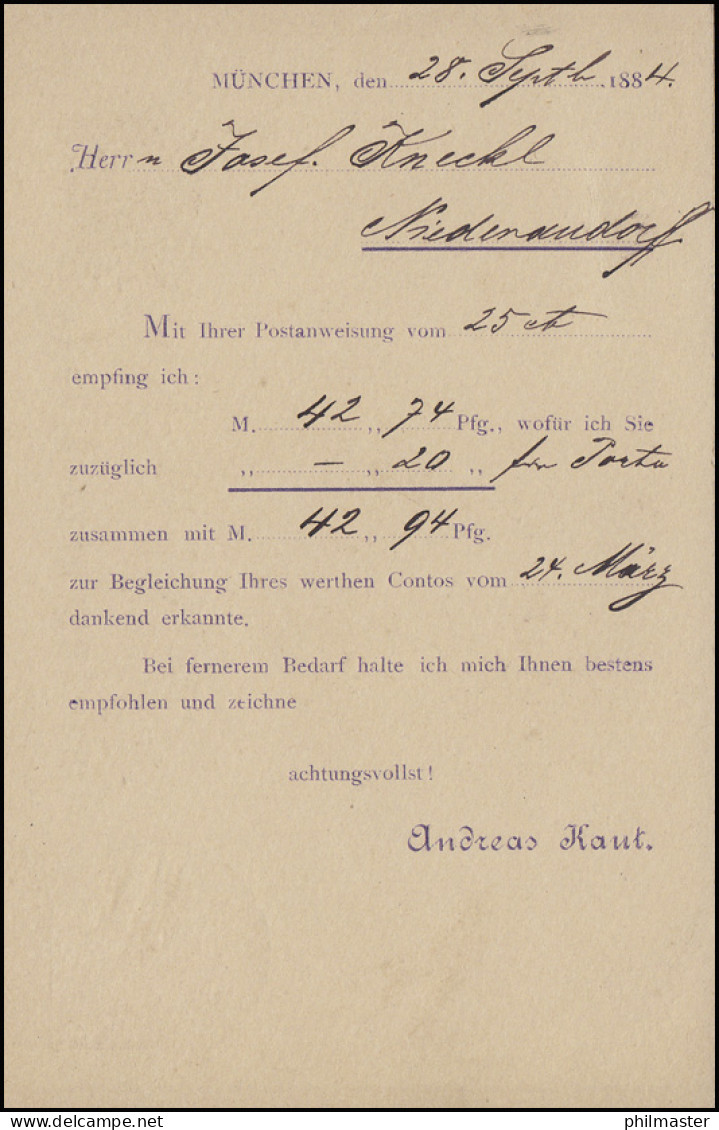 MÜNCHEN, den 28. Septb. 1884.
Herrn Josef Kneckl
Niederaudorf
Mit Ihrer Postanweisung vom 25 ct
empfing ich:
M. 42 „ 74 Pfg., wofür ich Sie
zuzüglich „ – „ 20 „ für Porto
zusammen mit M. 42 „ 94 Pfg.
zur Begleichung Ihres werthen Contos vom 24. März
dankend erkannte.
Bei fernerem Bedarf halte ich mich Ihnen bestens
empfohlen und zeichne
achtungsvollst!
Andreas Kaut.
www.delcampe.net
philmaster